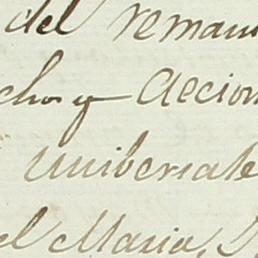 del reman
chos y Accion
Unibersale
el Maria,